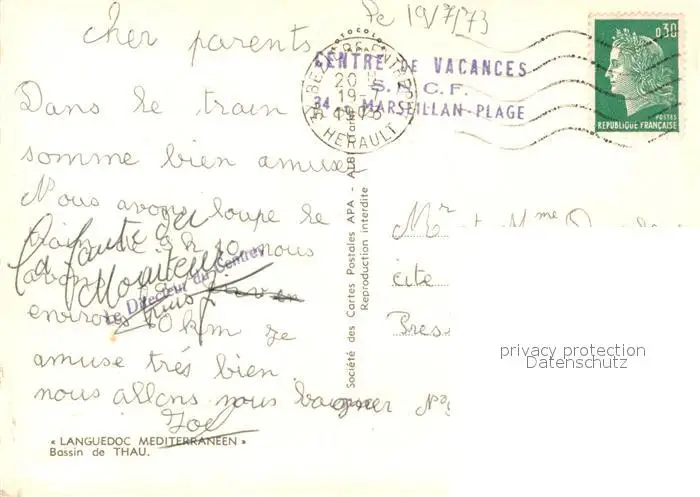 Le 19/7/73
cher parents
CENTRE DE VACANCES
S.N.C.F.
34 - MARSEILLAN-PLAGE
20 H
19-7
1973
HERAULT
0,30
POSTES
REPUBLIQUE FRANÇAISE
Dans le train
somme bien amuse
Nous avons loupe le
train de 9 h 10 nous
La faute du
Moniteur
Le Directeur du Centre
avons
environs 10 km je
amuse trés bien.
nous allons nous baigner
Joel
« LANGUEDOC MEDITERRANEEN »
Bassin de THAU.
Société des Cartes Postales APA - ALBI (Tarn)
Reproduction interdite
Mr et Mme
cite
Bres
privacy protection
Datenschutz